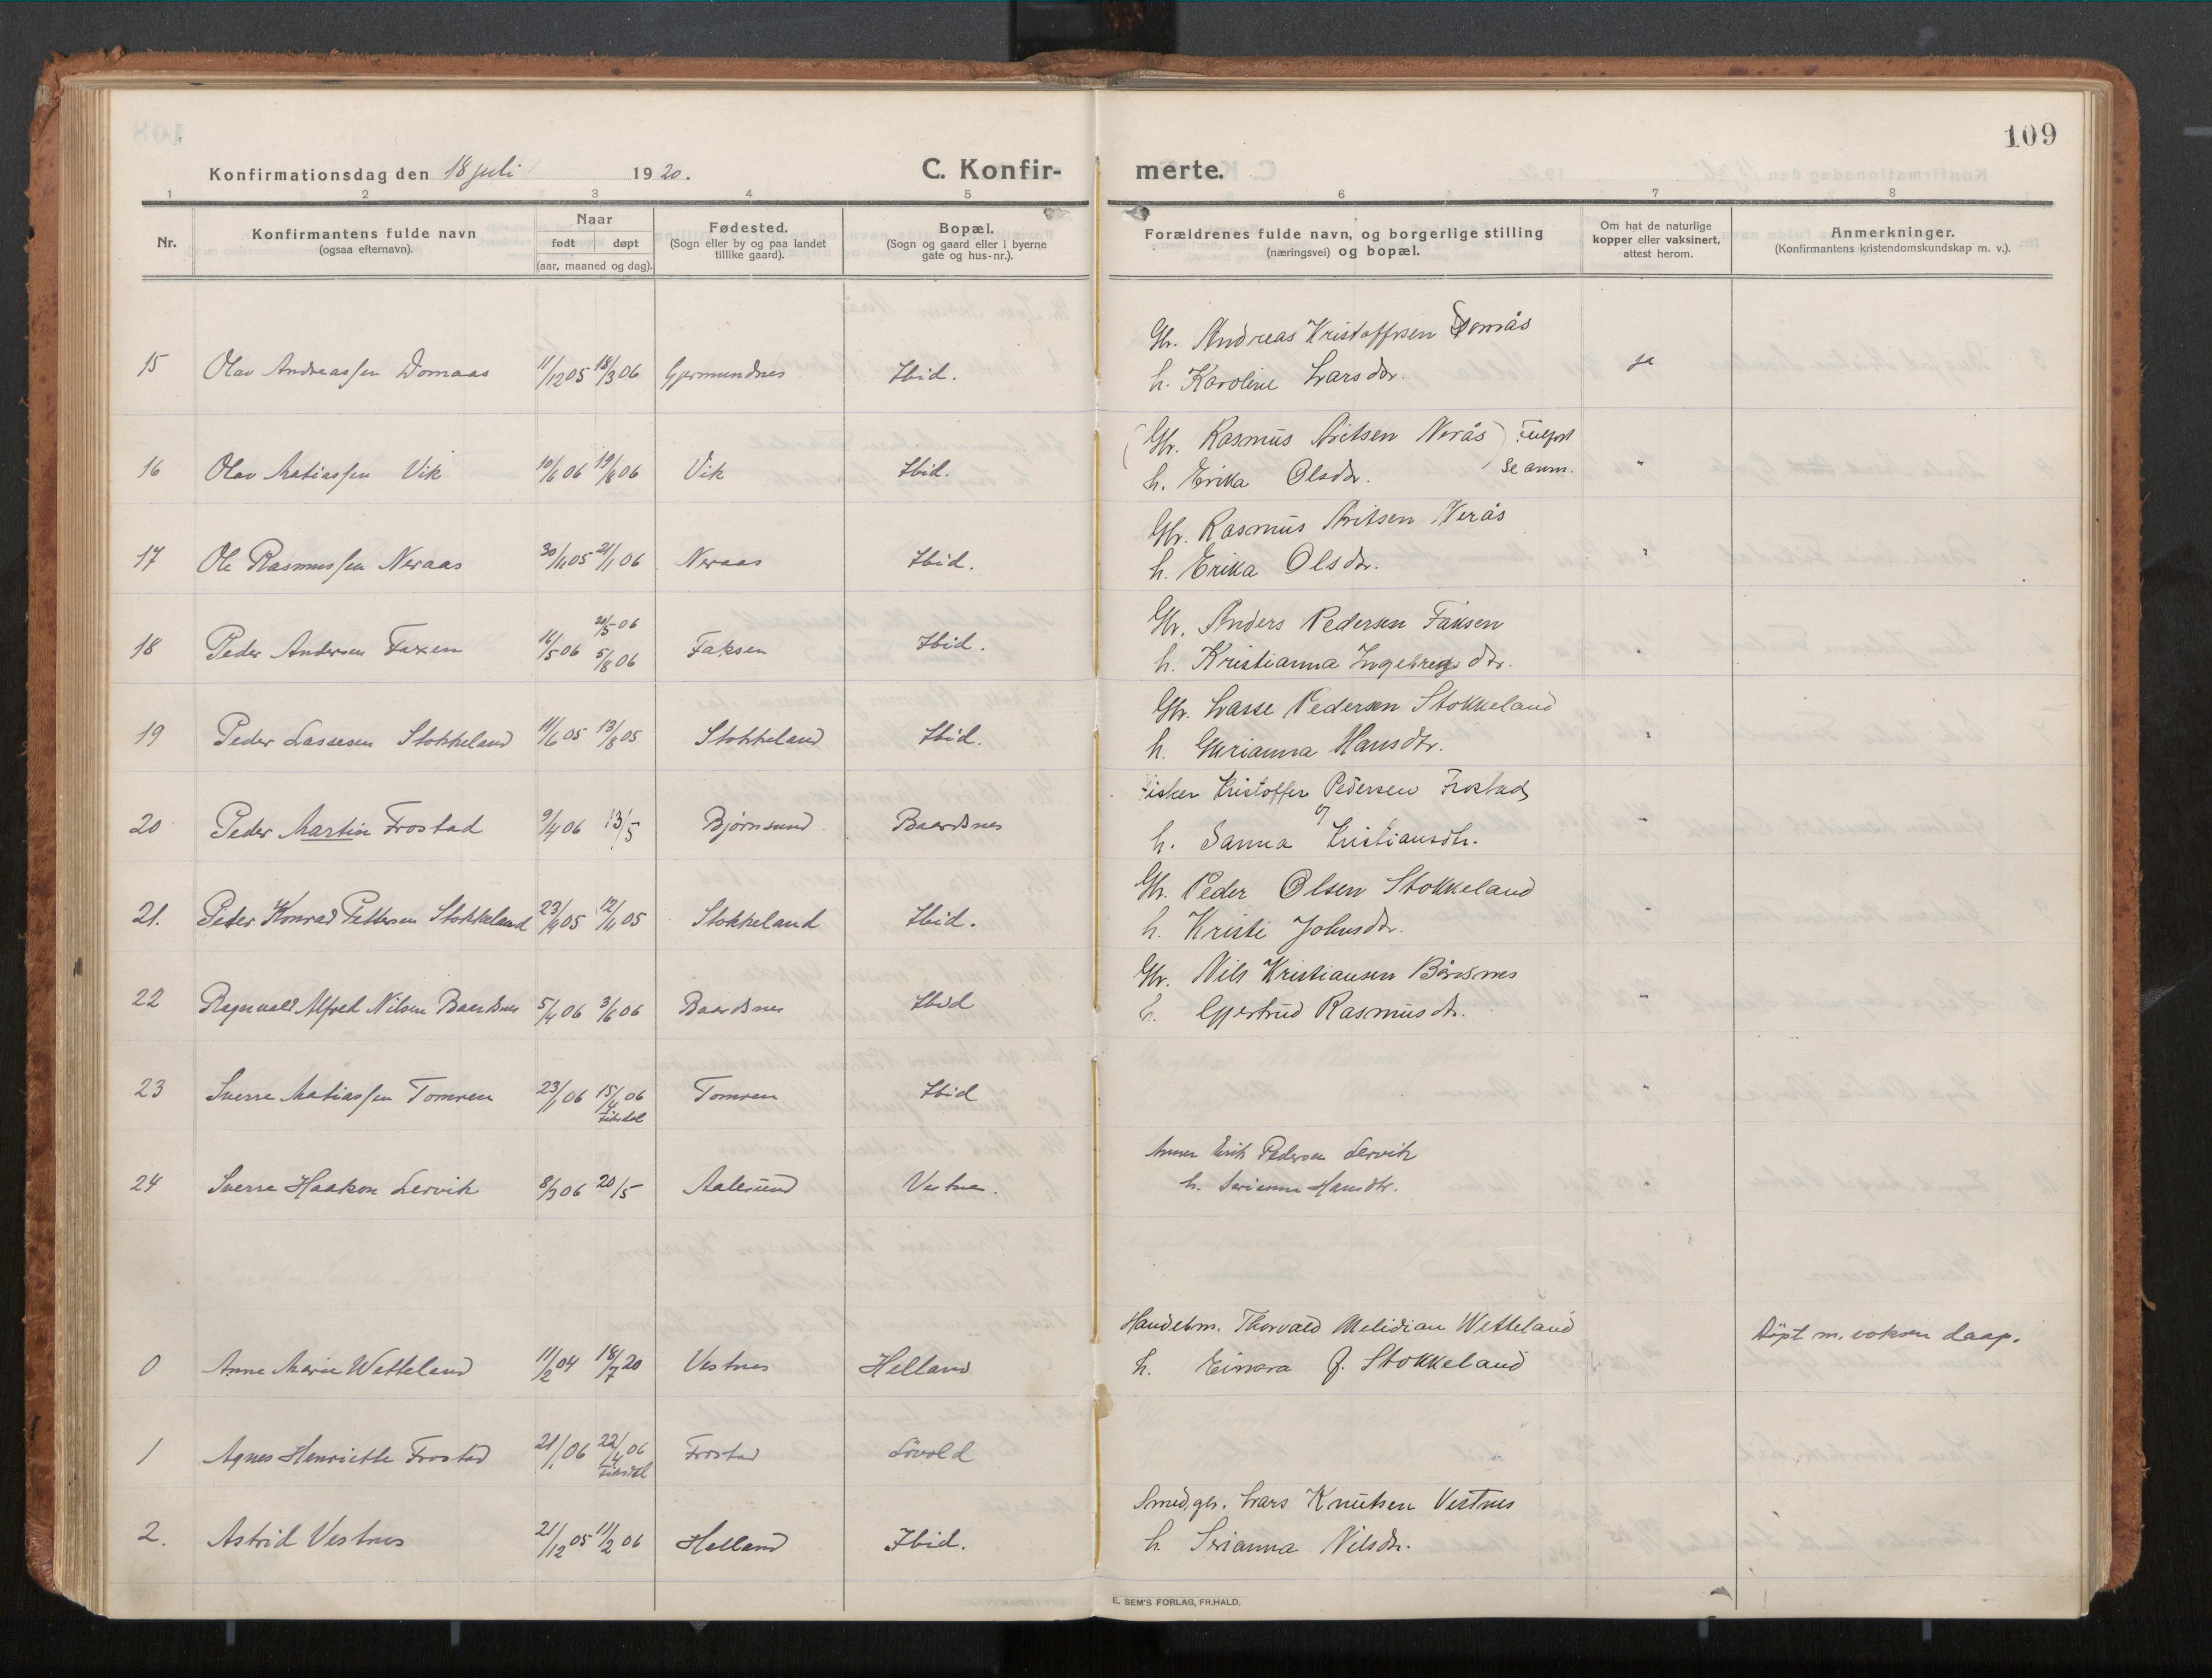 109
Konfirmationsdag den 18 juli 1920.
C. Konfir- merte.
1 2 3 4 5 6 7 8
Nr.
Konfirmantens fulde navn
(ogsaa efternavn).
Naar
født døpt
(aar, maaned og dag).
Fødested.
(Sogn eller by og paa landet
tillike gaard).
Bopæl.
(Sogn og gaard eller i byerne
gate og hus-nr.).
Forældrenes fulde navn, og borgerlige stilling
(næringsvei) og bopæl.
Om hat de naturlige
kopper eller vaksinert,
attest herom.
Anmerkninger.
(Konfirmantens kristendomskundskap m. v.).
Gbr. Andreas Kristoffersen Domås
15 Olav Andreassen Domaas 11/12 05 18/3 06 Gjermundnes Ibid. h. Karoline Larsdtr. ja
(Gbr. Rasmus Aritsen Nerås) Feilført
16 Olav Matiassen Vik 10/6 06 19/8 06 Vik Ibid. h. Erika Olsdtr. se anm. "
Gbr. Rasmus Aritsen Nerås
17 Ole Rasmussen Neraas 30/11 05 21/1 06 Neraas Ibid. h. Erika Olsdtr. "
Gbr. Anders Pedersen Faksen
20/5 06
18 Peder Andersen Faxen 16/5 06 5/8 06 Faksen Ibid. h. Kristianna Ingebregtsdtr. "
Gbr. Lasse Pedersen Stokkeland
19 Peder Lassesen Stokkeland 11/6 05 13/8 05 Stokkeland Ibid. h. Gurianna Hansdtr. "
Fisker Kristoffer Pedersen Frostad
20 Peder Martin Frostad 9/4 06 13/5 Bjørnsund Baardsnes og h. Sanna Kristiansdtr. "
Gbr. Peder Olsen Stokkeland
21. Peder Konrad Pettersen Stokkeland 23/9 05 12/11 05 Stokkeland Ibid. h. Kristi Johnsdtr. "
Gbr. Nils Kristiansen Bårdsnes
22 Ragnvald Alfred Nilsen Baardsnes 5/4 06 3/6 06 Baardsnes Ibid h. Gjertrud Rasmusdtr. "
23 Sverre Matiassen Tomren 23/1 06 15/4 06 Tomren Ibid "
Fiksdal
Erik Pedersen Lervik
24 Sverre Haakon Lervik 8/3 06 20/5 Aalesund Vestnes. h. Serianna Hansdtr.
Handelsm. Thorvald Melidian Wetteland
0 Anne Marie Wetteland 11/2 04 18/7 20 Vestnes Helland h. Einara J. Stokkeland Døpt m. voksen daap.
1 Agnes Henriette Frostad 21/1 06 22/4 06 Frostad Løvold
Fiksdal
Smed, gbr. Lars Knutsen Vestnes
2. Astrid Vestnes 21/12 05 11/2 06 Helland Ibid. h. Serianna Nilsdtr.
E. SEM'S FORLAG, FR.HALD.